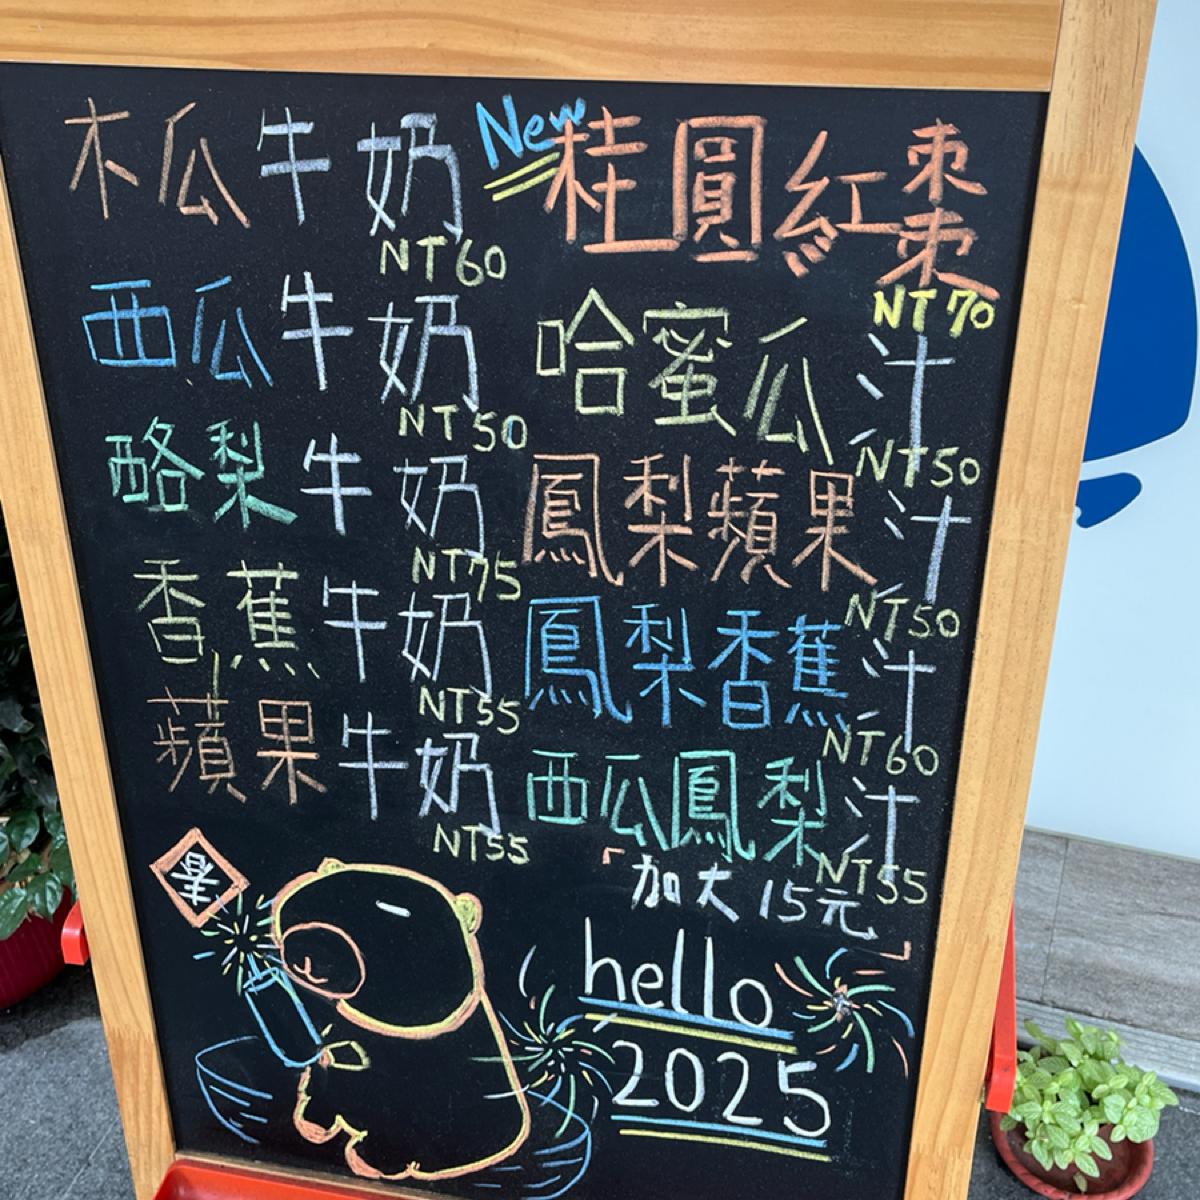 木瓜牛奶
NT60
西瓜牛奶
NT50
酪梨牛奶
NT75
香蕉牛奶
NT55
蘋果牛奶
NT55
New
桂圓紅棗
NT70
哈蜜瓜汁
NT50
鳳梨蘋果汁
NT50
鳳梨香蕉汁
NT60
西瓜鳳梨汁
NT55
「加大15元」
hello
2025